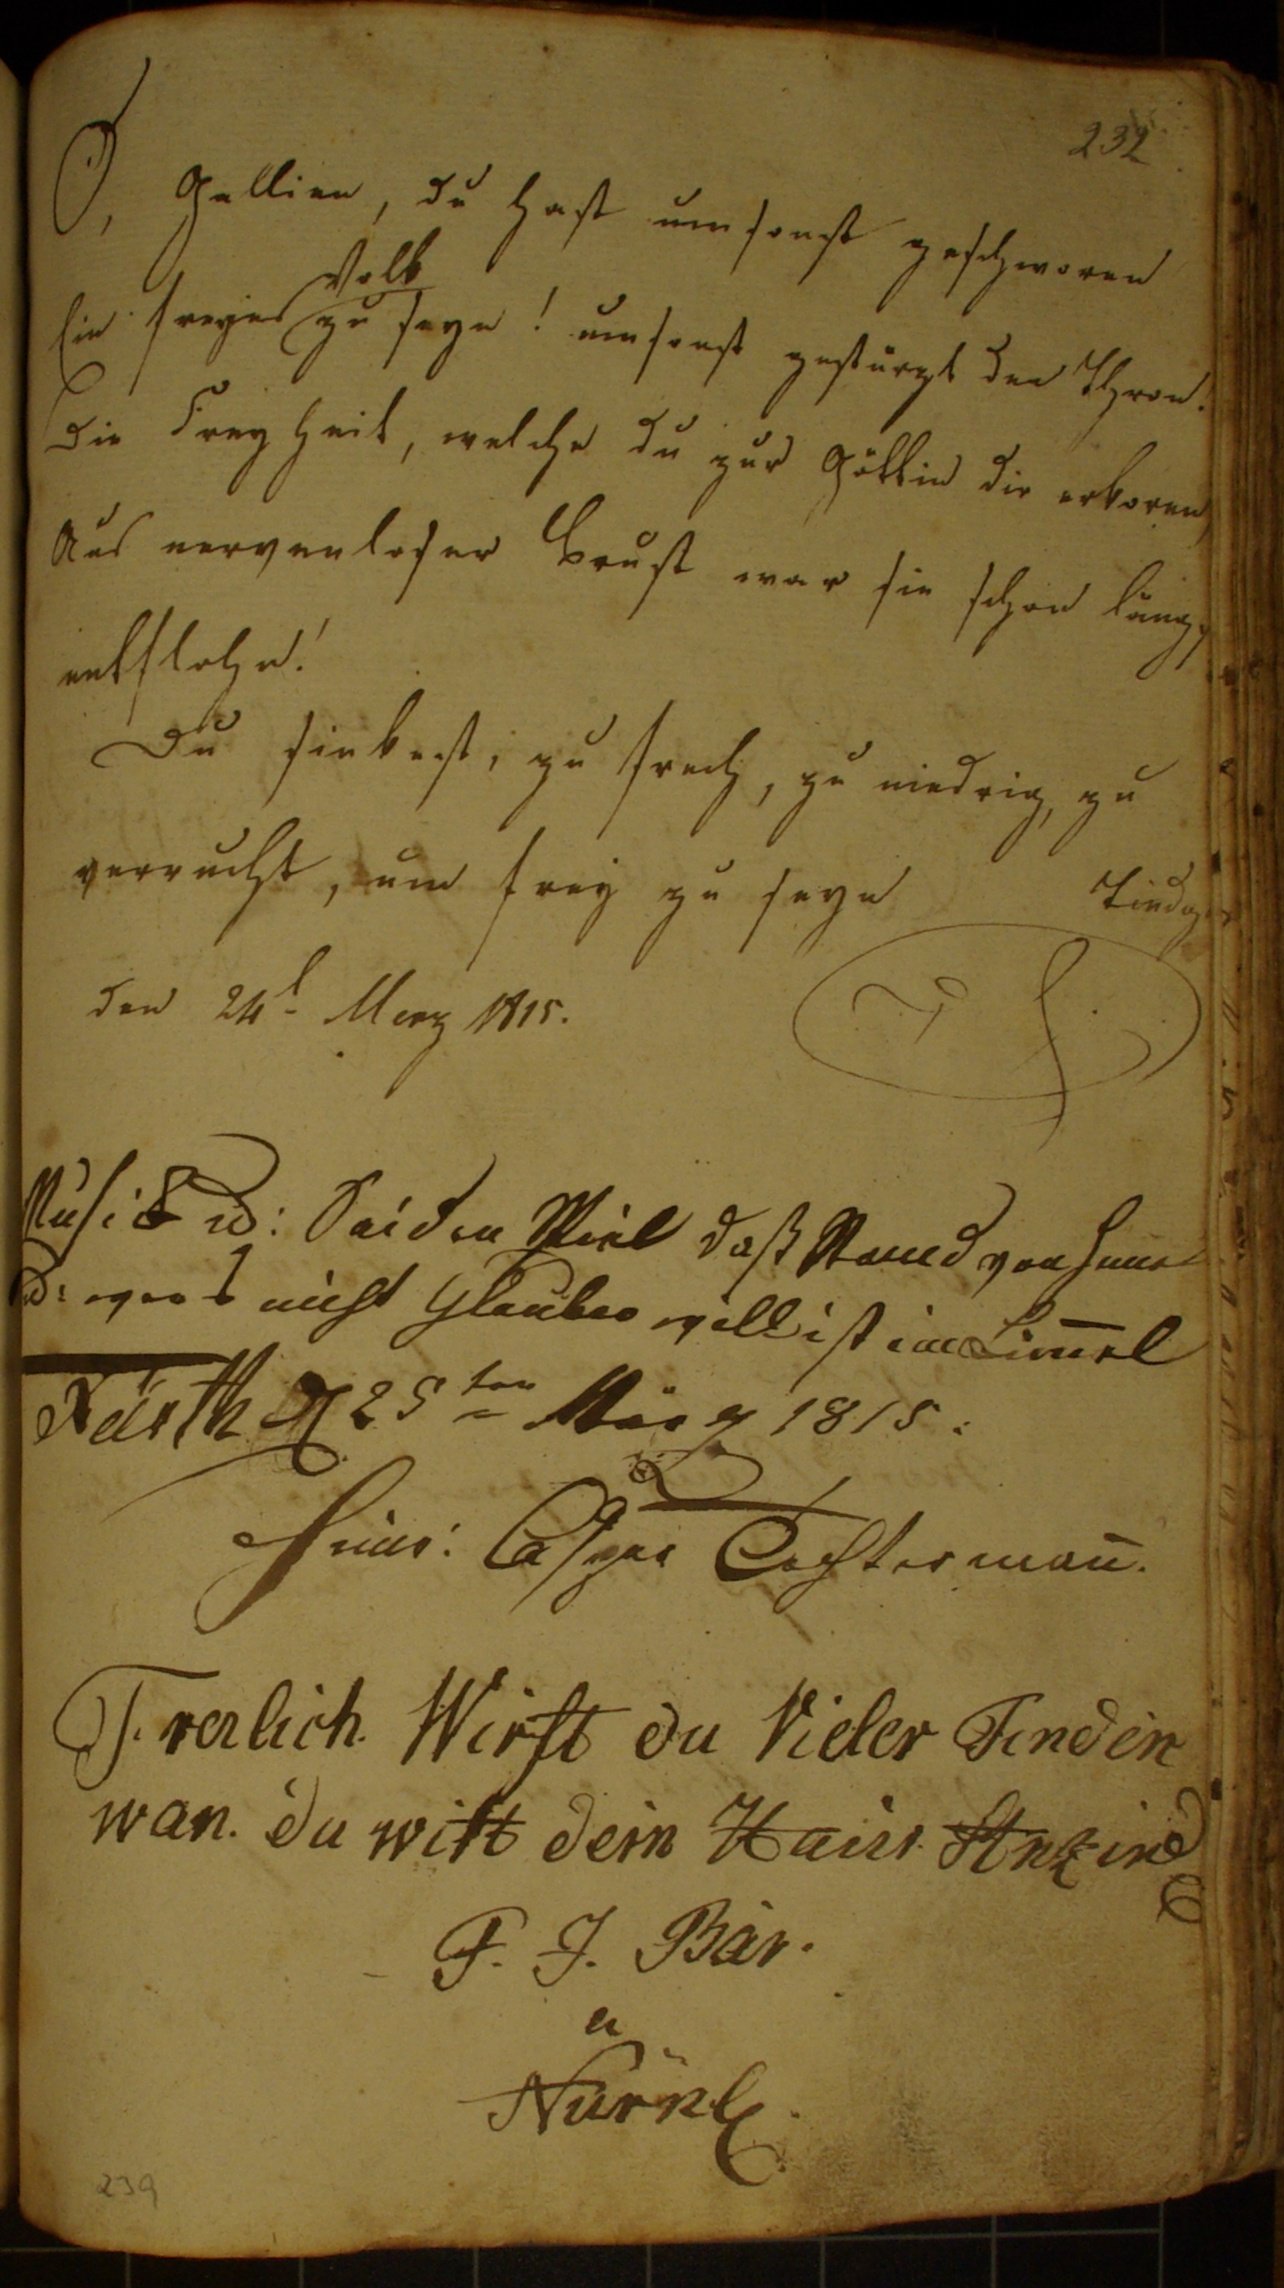 232
O, Gallien, du hast umsonst geschworen
Volk
Ein freyes zu seyn! umsonst gestürzt den Thron!
Die Freyheit, welche du zur Göttin dir erkoren,
Aus nervenloser Brust war sie schon läng
entflohn!
Du sinkest, zu frech, zu niedrig, zu
verrucht, um frey zu seyn
Tiedge
den 24t Merz 1815.
Music u: Saiden Spiel daß
nicht Glauben will ist im
Fürth 25ten März 1815:
Casper
Frerlich. Wirst du Vieler Finden
wan. du wilt dein Haus
F. J. Bär.
a
Nürnb
239